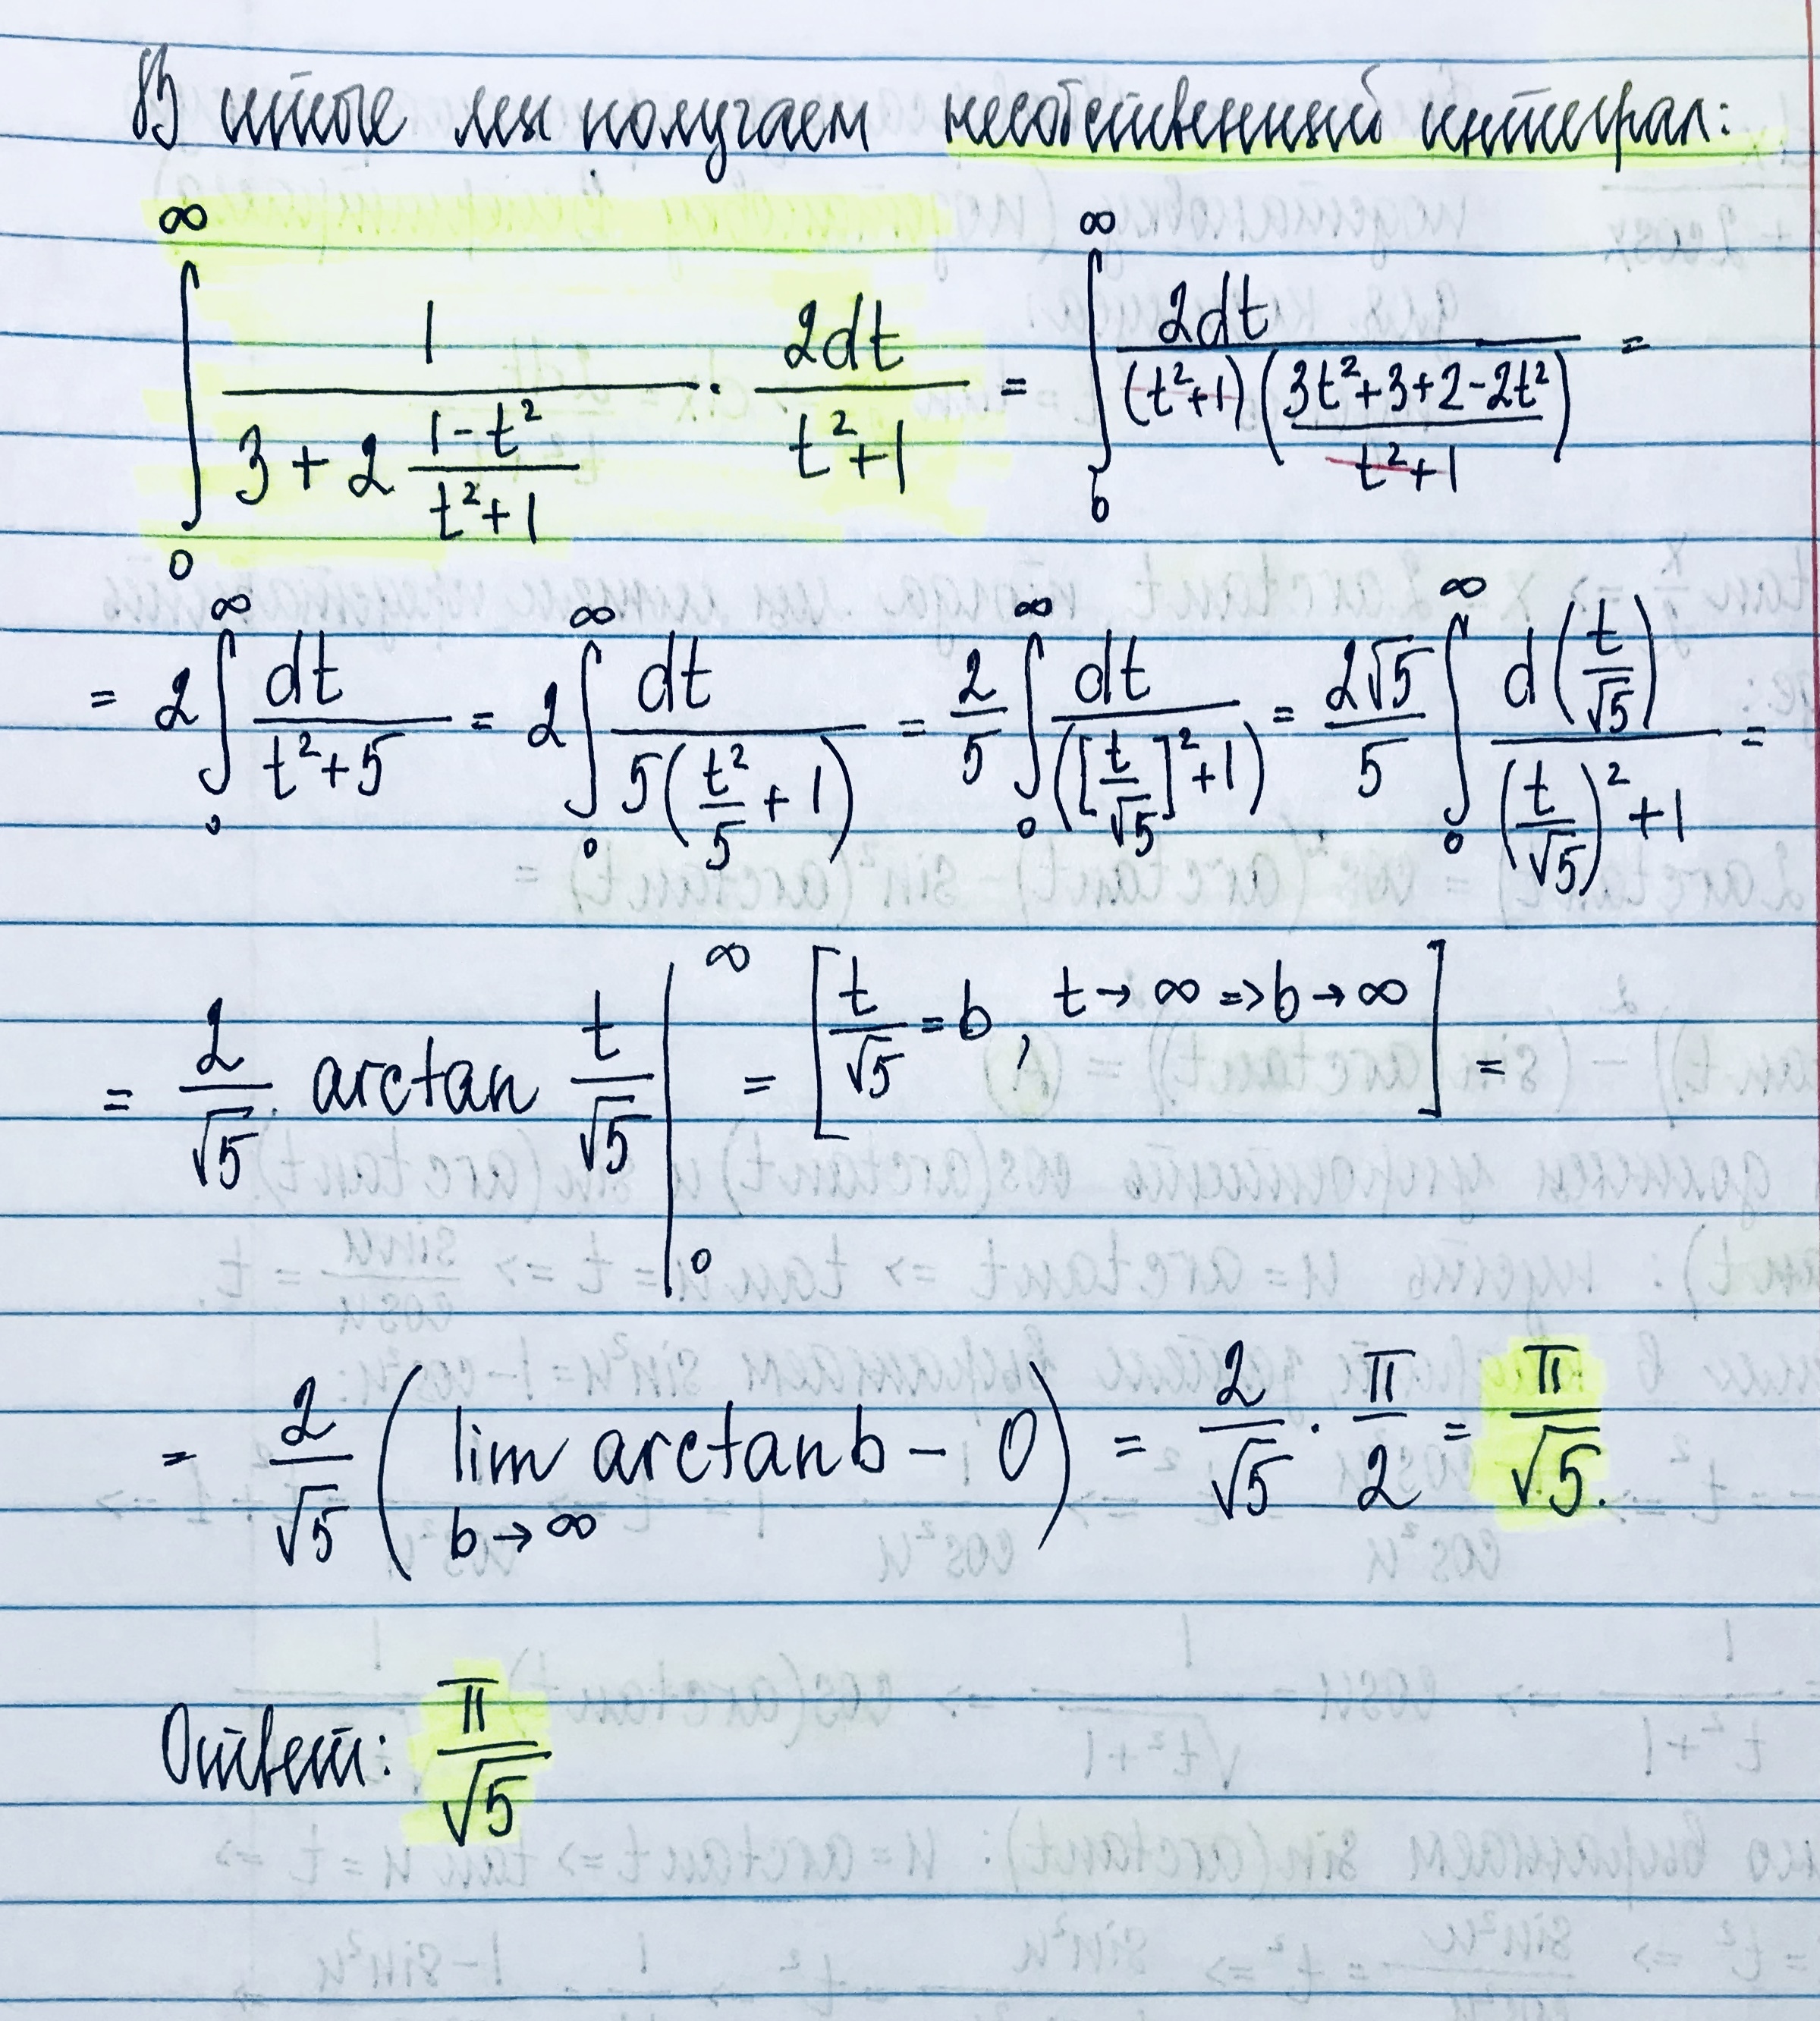 В итоге мы получаем несобственный интеграл:
∫₀^∞ 1/(3 + 2 (1-t²)/(t²+1)) · 2dt/(t²+1) = ∫₀^∞ 2dt/((t²+1)((3t²+3+2-2t²)/(t²+1))) =
= 2 ∫₀^∞ dt/(t²+5) = 2 ∫₀^∞ dt/(5(t²/5 + 1)) = 2/5 ∫₀^∞ dt/([t/√5]²+1) = 2√5/5 ∫₀^∞ d(t/√5)/((t/√5)²+1) =
= 2/√5 · arctan t/√5 |₀^∞ = [t/√5 = b, t→∞ => b→∞] =
= 2/√5 (lim_{b→∞} arctan b - 0) = 2/√5 · π/2 = π/√5.
Ответ: π/√5